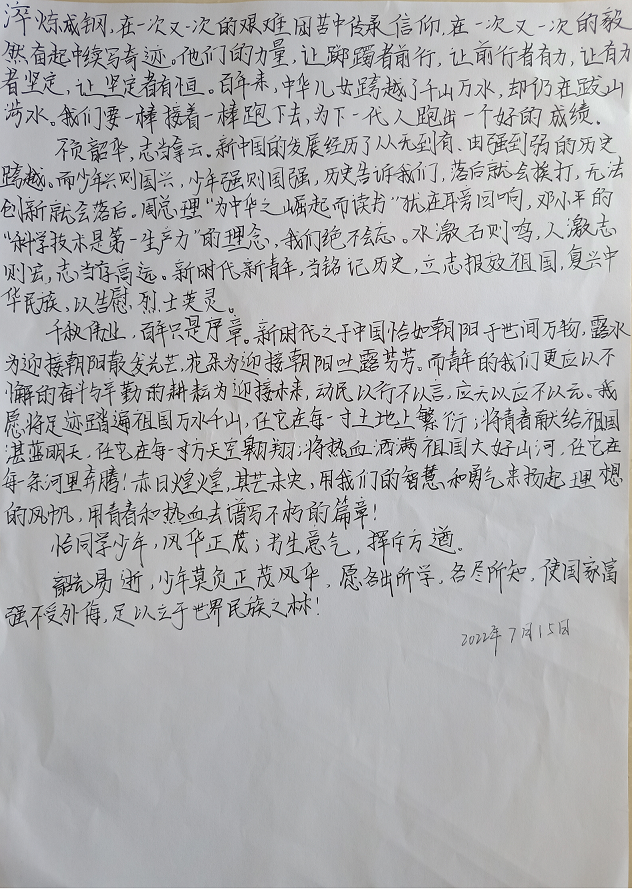 淬炼成钢,在一次又一次的艰难困苦中传承信仰,在一次又一次的毅
然奋起中续写奇迹。他们的力量,让踯躅者前行,让前行者有力,让有力
者坚定,让坚定者有恒。百年来,中华儿女跨越了千山万水,却仍在跋山
涉水。我们要一棒接着一棒跑下去,为下一代人跑出一个好的成绩。
不负韶华,志当拿云。新中国的发展经历了从无到有、由强到弱的历史
跨越。而少年兴则国兴,少年强则国强,历史告诉我们,落后就会挨打,无法
创新就会落后。周总理“为中华之崛起而读书”犹在耳旁回响,邓小平的
“科学技术是第一生产力”的理念,我们绝不会忘。水激石则鸣,人激志
则宏,志当存高远。新时代新青年,当铭记历史,立志报效祖国,复兴中
华民族,以告慰烈士英灵。
千秋伟业,百年只是序章。新时代之于中国恰如朝阳于世间万物,露水
为迎接朝阳散发光芒,花朵为迎接朝阳吐露芬芳。而青年的我们更应以不
懈的奋斗与辛勤的耕耘为迎接未来,动民以行不以言,应天以应不以云。我
愿将足迹踏遍祖国万水千山,任它在每一寸土地上繁衍;将青春献给祖国
湛蓝明天,任它在每一寸方天空翱翔;将热血洒满祖国大好山河,任它在
每一条河里奔腾!赤日煌煌,其芒未央,用我们的智慧和勇气来扬起理想
的风帆,用青春和热血去谱写不朽的篇章!
恰同学少年,风华正茂;书生意气,挥斥方遒。
韶光易逝,少年莫负正茂风华,愿各出所学,各尽所知,使国家富
强不受外侮,足以立于世界民族之林!
2022年7月15日